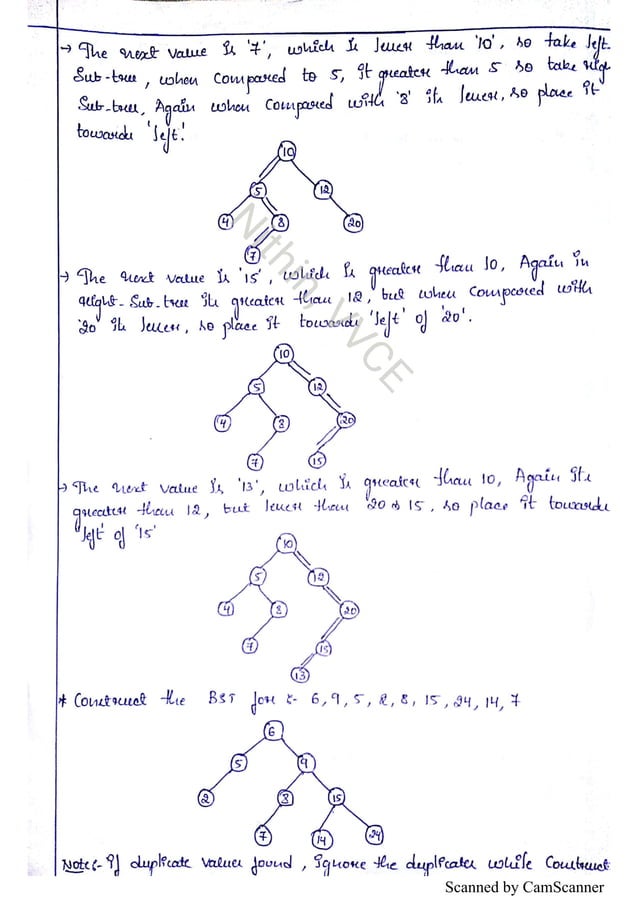 → The next value is '7', which is lesser than '10', so take left
Sub-tree, when compared to 5, it greater than 5 so take righ
Sub-tree, Again when compared with '8' its lesser, so place it
towards 'left'.
10
5 12
4 8 20
7
→ The next value is '15', which is greater than 10, Again in
right-Sub-tree its greater than 12, but when Compared with
'20' its lesser, so place it towards 'left' of '20'.
10
5 12
4 8 20
7 15
→ The next value is '13', which is greater than 10, Again its
greater than 12, but lesser than '20 & 15, so place it towards
'left' of '15'
10
5 12
4 8 20
7 15
13
* Construct the BST for :- 6, 9, 5, 2, 8, 15, 24, 14, 7
6
5 9
2 8 15
7 14 24
Note:- If duplicate values found, ignore the duplicates while Construct
Nithin, VVCE
Scanned by CamScanner